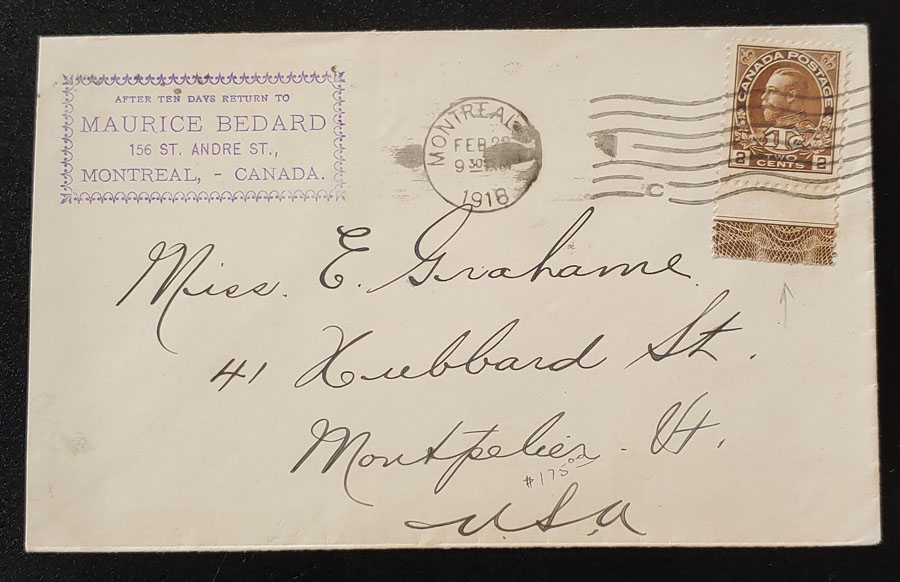 AFTER TEN DAYS RETURN TO
MAURICE BEDARD
156 ST. ANDRE ST.,
MONTREAL, - CANADA.
MONTREAL
FEB 28
9 30
1918
C
CANADA POSTAGE
1Tc
2 TWO CENTS 2
Miss. E. Grahame
41 Hubbard St.
Montpelier. Vt.
$175.00
U.S.A